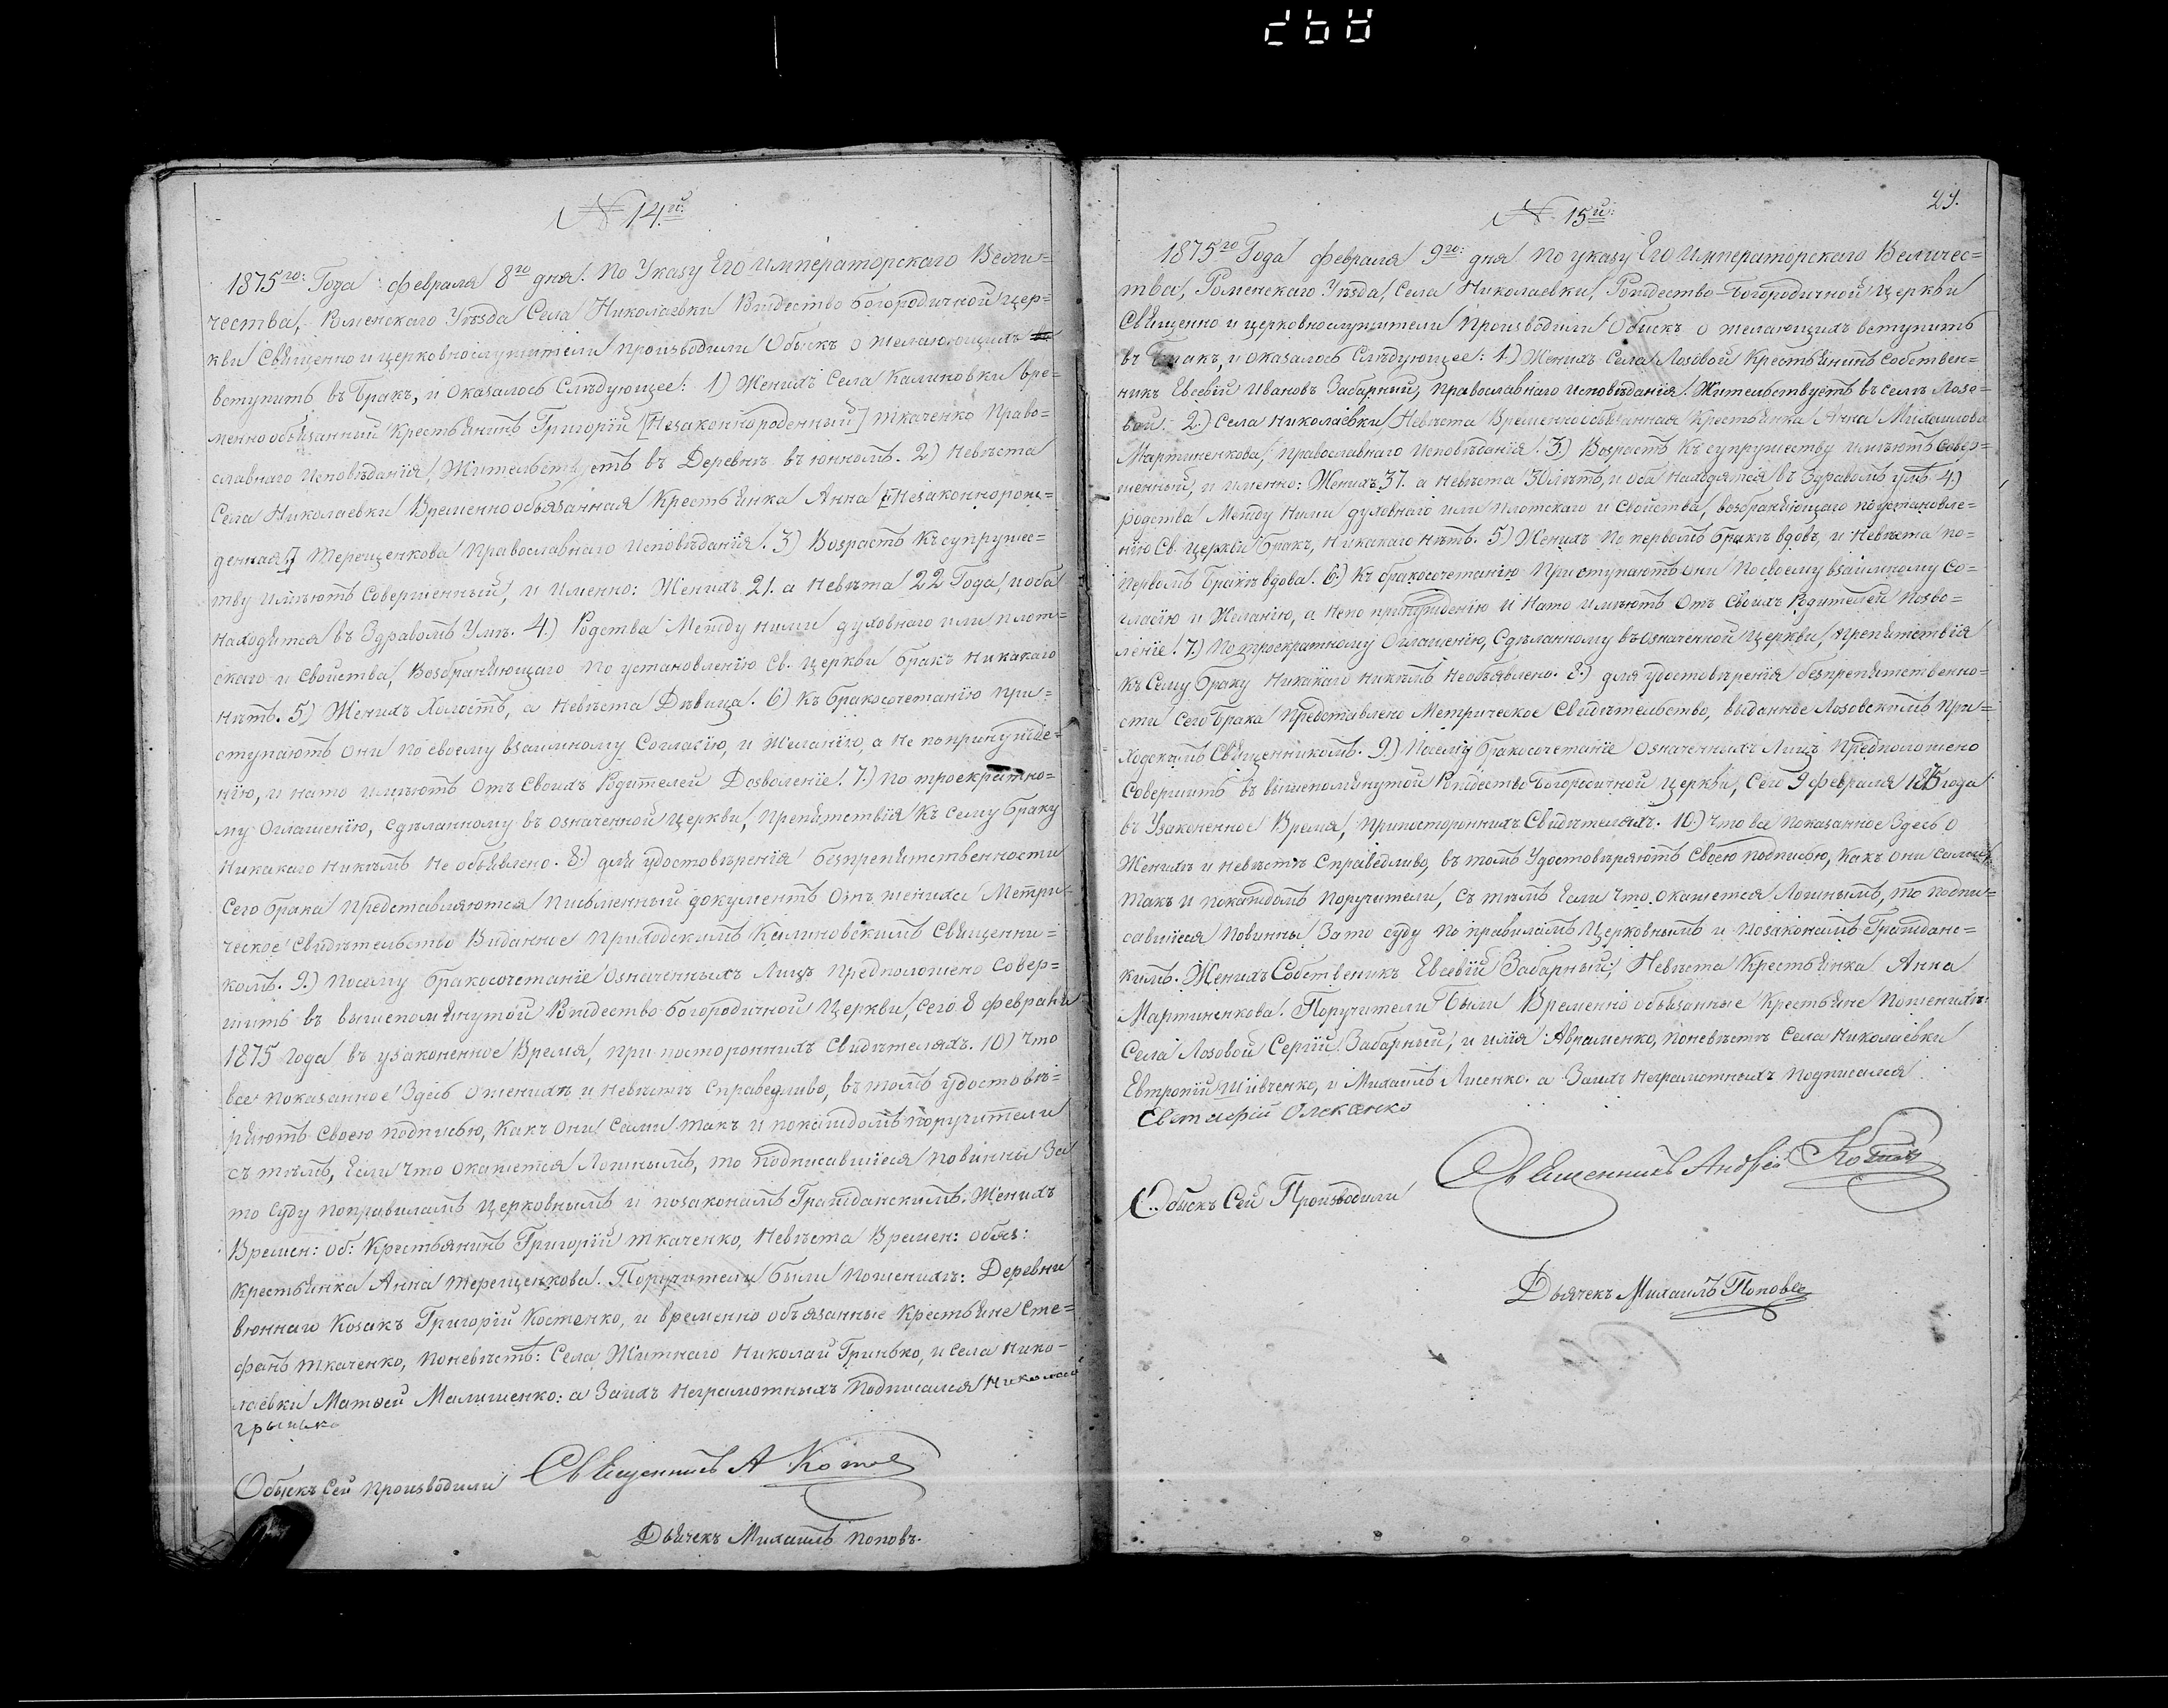 № 14й.
1875го: Года февраля 8го дня. По Указу Его Императорскаго Вели-
чества, Роменскаго Уѣзда Села Николаевки Рождество Богородичной Цер-
кви Священно и церковнослужители производили Обыскъ о желающихъ
вступить въ Бракъ, и оказалось Слѣдующее: 1) Женихъ Села Калиновки Вре-
менно обязанный Крестьянинъ Григорій [Незаконнорожденный] Ткаченко Право-
славнаго Исповѣданія, Жительствуетъ въ Деревнѣ вьюнномъ. 2) Невѣста
Села Николаевки Временно обязанная Крестьянка Анна [Незаконнорож-
денная] Терещенкова Православнаго Исповѣданія. 3) Возрастъ Къ супружес-
тву имѣютъ Совершенный, и Именно: Женихъ 21. а Невѣста 22 Года, и оба
находятся въ Здравомъ Умѣ. 4) Родства Между ними духовнаго или плот-
скаго и Свойства, Возбраняющаго по установленію Св. Церкви бракъ Никакаго
Нѣтъ. 5) Женихъ Холостъ, а Невѣста Дѣвица. 6) Къ бракосочетанію при-
ступаютъ Они по своему взаимному Согласію, и Желанію, а Не по принужде-
нію, и на то имѣютъ Отъ Своихъ Родителей Дозволеніе. 7.) По троекратно-
му Оглашенію, сдѣланному въ означенной Церкви, Препятствія Къ сему браку
Никакаго Никѣмъ Не объявлено. 8.) для удостовѣренія безпрепятственности
Сего брака представляются Письменный документъ Отъ жениха Метри-
ческое Свидѣтельство Виданное Приходскимъ Калиновскимъ Священни-
комъ. 9.) Посему бракосочетаніе Означенныхъ Лицъ Предположено Совер-
шить въ вышепомянутой Рождество-Богородичной Церкви, Сего 8 февраля
1875 года въ узаконенное Время, при постороннихъ Свидѣтеляхъ. 10) Что
все показанное Здѣсь о женихѣ и Невѣстѣ Справедливо, въ томъ удостовѣ-
ряютъ Своею подписью, Какъ Они Сами такъ и по каждомъ поручители
съ тѣмъ, Если Что окажется Ложнымъ, то Подписавшіеся Повинны За
то Суду по правиламъ Церковнымъ и по законамъ Гражданскимъ. Женихъ
Времен: об: Крестьянинъ Григорій Ткаченко, Невѣста Времен: обяз:
Крестьянка Анна Терещенкова. Поручители были По женихѣ: Деревни
вюннаго Козакъ Григорій Костенко, и временно объязанные Крестьяне Сте-
фанъ Ткаченко, По невѣстѣ: Села Житнаго Николай Гринько, и Села Нико-
лаевки Матѳей Малишенко: а За ихъ Неграмотныхъ Подписался Николай
Грынько
Обыскъ Сей Производили Священникъ А Котов
Дьячекъ Михаилъ Поповъ.
№ 15й: 29.
1875го Года февраля 9го: дня По указу Его Императорскаго Величес-
тва, Роменскаго Уѣзда, Села Николаевки, Рождество-Богородичной Церкви
Священно и церковнослужители Производили Обискъ о желающихъ вступить
въ Бракъ, и оказалось Слѣдующее: 1) Женихъ Села Лозовой Крестьянинъ Собствен-
никъ Евсевій Ивановъ Забарный, Православнаго исповѣданія. Жительствуетъ въ селѣ Лозо-
вой. 2.) Села Николаевки Невѣста Временно объязанная Крестьянка Анна Михаилова
Мартиненкова, Православнаго Исповѣданія. 3.) Возрастъ Къ супружеству имѣютъ совер-
шенный, и именно: Женихъ 37. а Невѣста 30 лѣтъ, и оба Находятся въ Здравомъ умѣ. 4.)
родства Между Ними духовнаго или плотскаго и Свойства, возбраняющаго по установле-
нію Св. Церкви бракъ, Никакаго Нѣтъ. 5) Женихъ По первомъ бракѣ вдовъ, и Невѣста по-
первомъ бракѣ вдова. 6.) Къ бракосочетанію Приступаютъ Они По своему взаимному Со-
гласію и Желанію, а Непо принужденію и На то имѣютъ Отъ Своихъ Родителей Позво-
леніе. 7.) По троекратному Оглашенію, Сдѣланному въ означенной Церкви, Препятствія
Къ Сему браку Никакаго Никѣмъ Необъявлено. 8.) для удостовѣренія безпрепятственно-
сти Сего брака Представлено Метрическое Свидѣтельство, выданное Лозовскимъ При-
ходскимъ Священникомъ. 9.) Посему бракосочетаніе Означенныхъ Лицъ Предположено
Совершить въ вышепомянутой Рождество Богородичной Церкви, Сего 9 февраля 1875 года
въ Узаконенное Время, При постороннихъ Свидѣтеляхъ. 10.) Что все Показанное Здѣсь о
Женихѣ и Невѣстѣ Справедливо, въ томъ Удостовѣряютъ Своею подписью, Какъ они сами
такъ и по каждомъ Поручители, Съ тѣмъ Если Что окажется Ложнымъ, то Подпи-
савшіеся Повинны За то суду по правиламъ Церковнымъ и По законамъ Гражданс-
кимъ. Женихъ Собственикъ Евсевій Забарный; Невѣста Крестьянка Анна
Мартиненкова. Поручители были Временно объязанные Крестьяне По женихѣ:
Села Лозовой Сергій Забарный, и илія Авраменко, По невѣстѣ Села Николаевки
Евтропій Шивченко, и Михаилъ Лисенко. а За ихъ Неграмотныхъ Подписался
Обыскъ Сей Производили
Священникъ Андрей Котовъ
Дьячекъ Михаилъ Поповъ